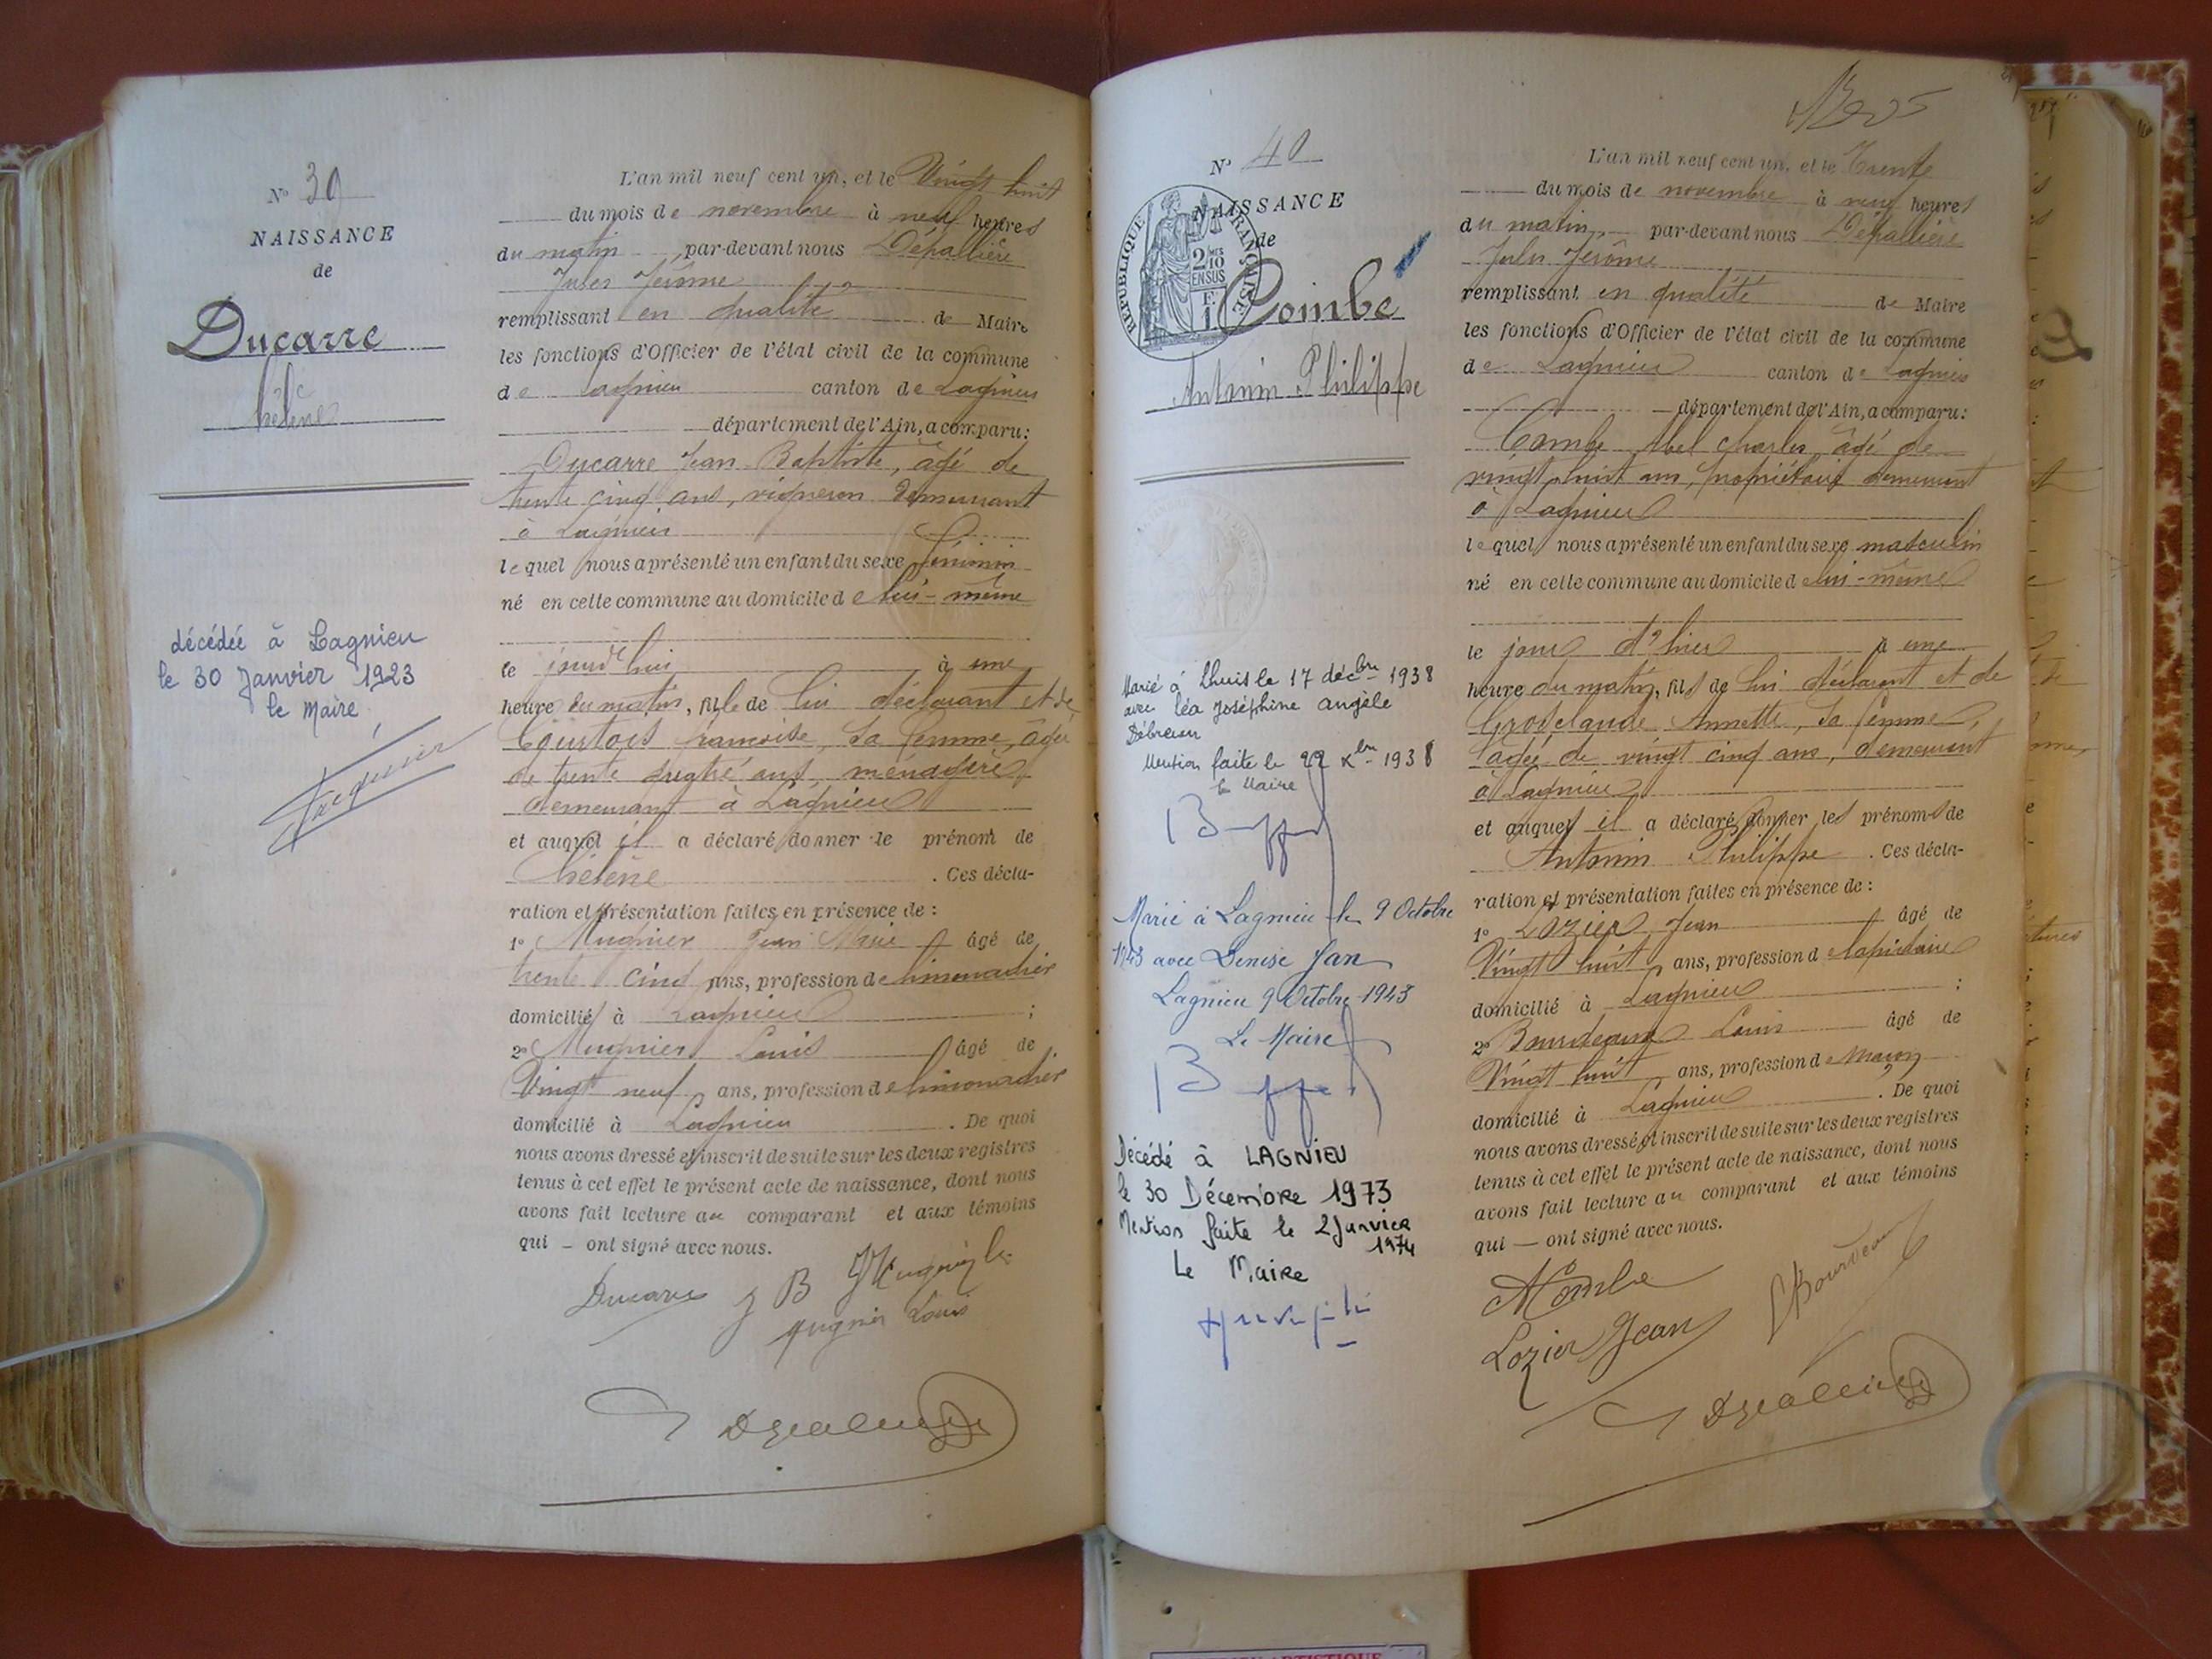 N° 39
NAISSANCE
de
Ducarre
hélène
décédée à Lagnieu
le 30 Janvier 1923
le Maire
L'an mil neuf cent un, et le Vingt huit
du mois de novembre à neuf heures
du matin par-devant nous Dépallière
Jules Jérôme
remplissant en qualité de Maire
les fonctions d'Officier de l'état civil de la commune
de Lagnieu canton de Lagnieu
département de l'Ain, a comparu:
Ducarre Jean Baptiste, âgé de
trente cinq ans, vigneron demeurant
à Lagnieu
lequel nous a présenté un enfant du sexe féminin
né en cette commune au domicile de lui-même
le jourd'hui à une
heure du matin, fille de lui déclarant et de
Courtois françoise, sa femme, âgée
de trente quatre ans, ménagère,
demeurant à Lagnieu
et auquel il a déclaré donner le prénom de
hélène. Ces décla-
ration et présentation faites en présence de :
1° Mugnier Jean Marie âgé de
trente cinq ans, profession de limonadier
domicilié à Lagnieu ;
2° Mugnier Louis âgé de
Vingt neuf ans, profession de limonadier
domicilié à Lagnieu. De quoi
nous avons dressé et inscrit de suite sur les deux registres
tenus à cet effet le présent acte de naissance, dont nous
avons fait lecture au comparant et aux témoins
qui – ont signé avec nous.
Ducarre J B
Mugnier Louis
N° 40
NAISSANCE
de
RÉPUBLIQUE FRANÇAISE
2/10
EN SUS
Combe
Antonin Philippe
Marié à Lhuis le 17 décbre 1938
avec Léa Joséphine Angèle
Mention faite le 22 Xbre 1938
le Maire
Marié à Lagnieu le 9 Octobre
1943 avec Denise Jan
Lagnieu 9 Octobre 1943
Le Maire
Décédé à LAGNIEU
le 30 Décembre 1973
Mention faite le 2 Janvier
1974
Le Maire
L'an mil neuf cent un, et le Trente
du mois de novembre à neuf heures
du matin, par-devant nous Dépallière
Jules Jérôme
remplissant en qualité de Maire
les fonctions d'Officier de l'état civil de la commune
de Lagnieu canton de Lagnieu
département de l'Ain, a comparu:
Combe Abel Charles âgé de
vingt huit ans, propriétaire demeurant
à Lagnieu
lequel nous a présenté un enfant du sexe masculin
né en cette commune au domicile de lui-même
le jour d'hier à une
heure du matin, fils de lui déclarant et de
Grosclaude Annette, sa femme,
âgée de vingt cinq ans, demeurant
à Lagnieu
et auquel il a déclaré donner les prénoms de
Antonin Philippe. Ces décla-
ration et présentation faites en présence de :
1° Lozier Jean âgé de
Vingt huit ans, profession de lapidaire
domicilié à Lagnieu ;
2° Bourdeaux Louis âgé de
Vingt huit ans, profession de maçon
domicilié à Lagnieu. De quoi
nous avons dressé et inscrit de suite sur les deux registres
tenus à cet effet le présent acte de naissance, dont nous
avons fait lecture au comparant et aux témoins
qui — ont signé avec nous.
A Combe
Lozier Jean